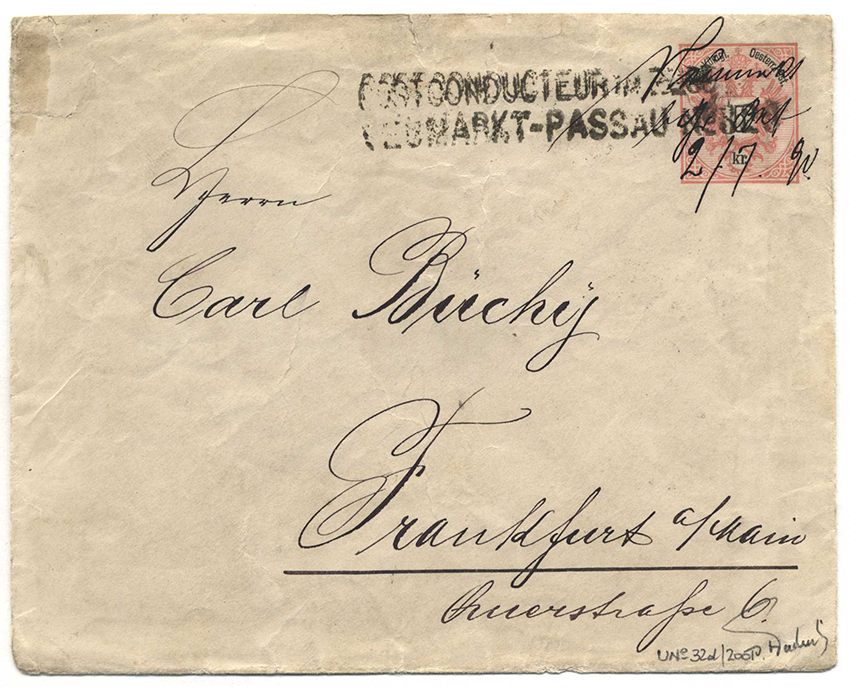 POSTCONDUCTEUR IM ZUGE
NEUMARKT-PASSAU
Oesterr.
kr.
2/7. 90.
Herrn
Carl Büchÿ
Frankfurt a/Main
Querstraße 6.
UNº 32d/200P.